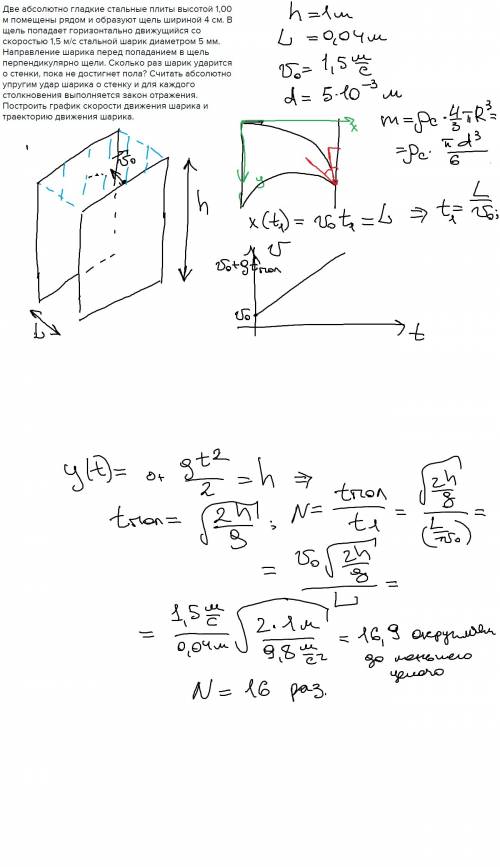 Две абсолютно гладкие стальные плиты высотой 1,00
м помещены рядом и образуют щель шириной 4 см. В
щель попадает горизонтально движущийся со
скоростью 1,5 м/с стальной шарик диаметром 5 мм.
Направление шарика перед попаданием в щель
перпендикулярно щели. Сколько раз шарик ударится
о стенки, пока не достигнет пола? Считать абсолютно
упругим удар шарика о стенку и для каждого
столкновения выполняется закон отражения.
Построить график скорости движения шарика и
траекторию движения шарика.
h = 1 м
L = 0,04 м
v₀ = 1,5 м/с
d = 5·10⁻³ м
m = ρc · 4/3 πR³ =
= ρc · πd³/6
v₀
h
L
x
y
x(t₁) = v₀t₁ = L ⇒ t₁ = L/v₀;
v
v₀+gtпол
v₀
t
y(t) = 0+ gt²/2 = h ⇒
tпол = √(2h/g); N = tпол/t₁ = √(2h/g)/(L/v₀) =
= v₀√(2h/g)/L =
= 1,5 м/с / 0,04 м √(2·1 м / 9,8 м/с²) = 16,9 округляем
до меньшего
целого
N = 16 раз.